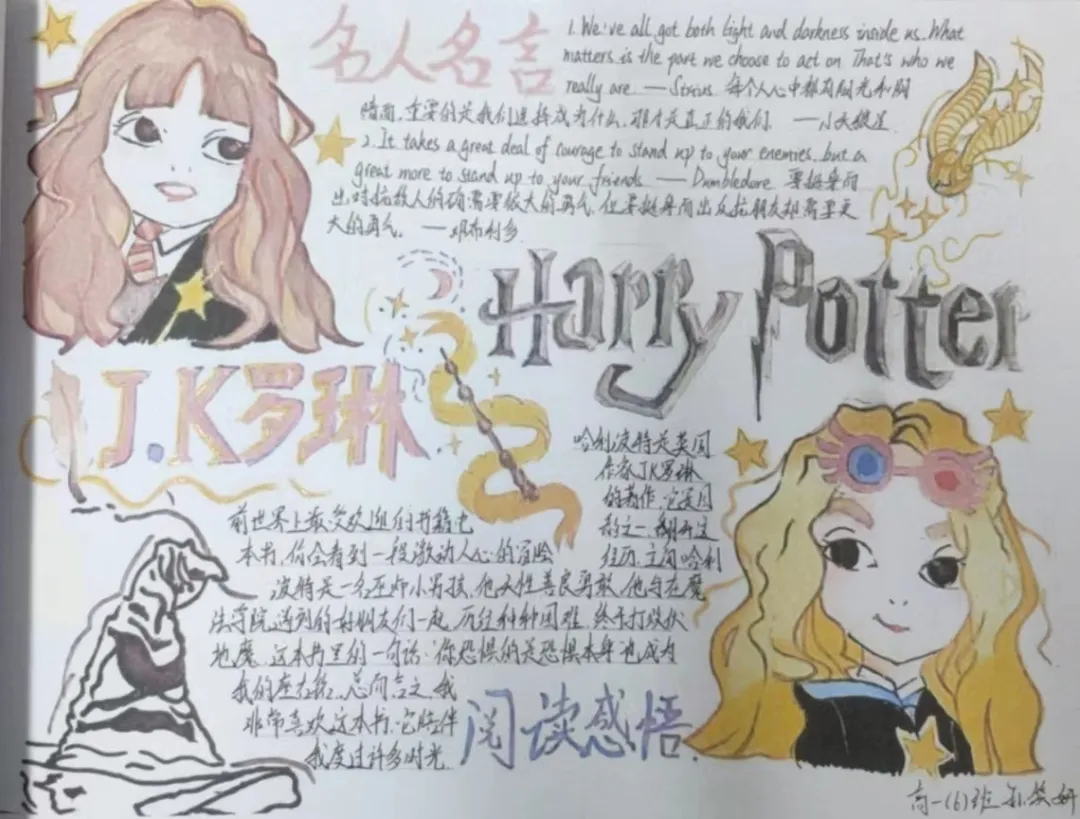 名人名言
1. We've all got both light and darkness inside us. What
matters is the part we choose to act on. That's who we
really are. — Sirius. 每个人心中都有阳光和阴
暗面,重要的是我们选择成为什么,那才是真正的我们. —小天狼星
2. It takes a great deal of courage to stand up to your enemies, but a
great more to stand up to your friends — Dumbledore 要挺身而
出对抗敌人的确需要很大的勇气,但要挺身而出反抗朋友却需要更
大的勇气. —邓布利多
Harry Potter
J.K罗琳
哈利波特是英国
作家JK罗琳
的著作,它是目
前世界上最受欢迎的书籍
之一,翻开这
本书,你会看到一段激动人心的冒险
经历,主角哈利
波特是一名巫师小男孩,他天性善良勇敢,他与在魔
法学院遇到的好朋友们一起,历经种种困难,终于打败伏
地魔,这本书里的一句话:你恐惧的是恐惧本身也成为
我的座右铭,总而言之,我
非常喜欢这本书,它陪伴
我度过许多时光
阅读感悟.
高一(6)班